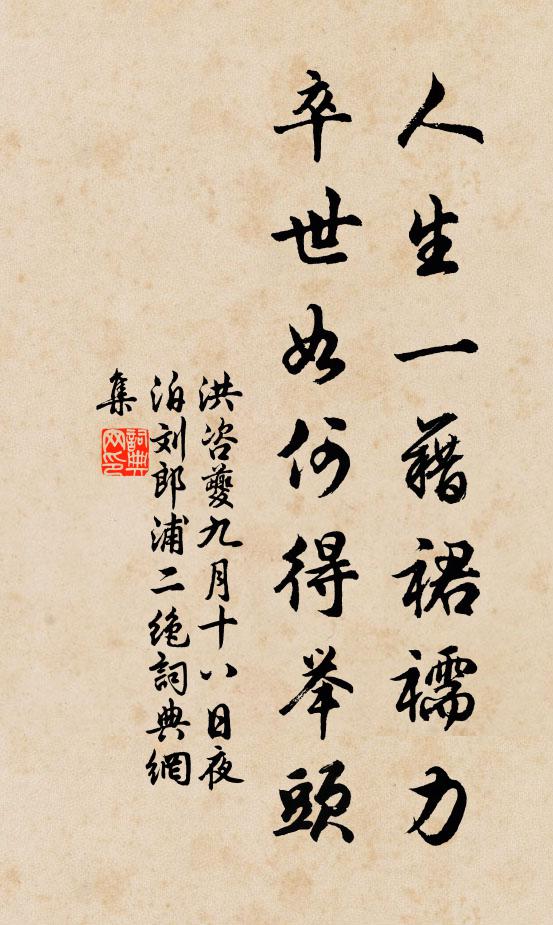 人生一藉裙襦力
卒世如何得举頭
洪咨夔九月十八日夜
泊刘郎浦二绝詞典網
集
詞典
网印